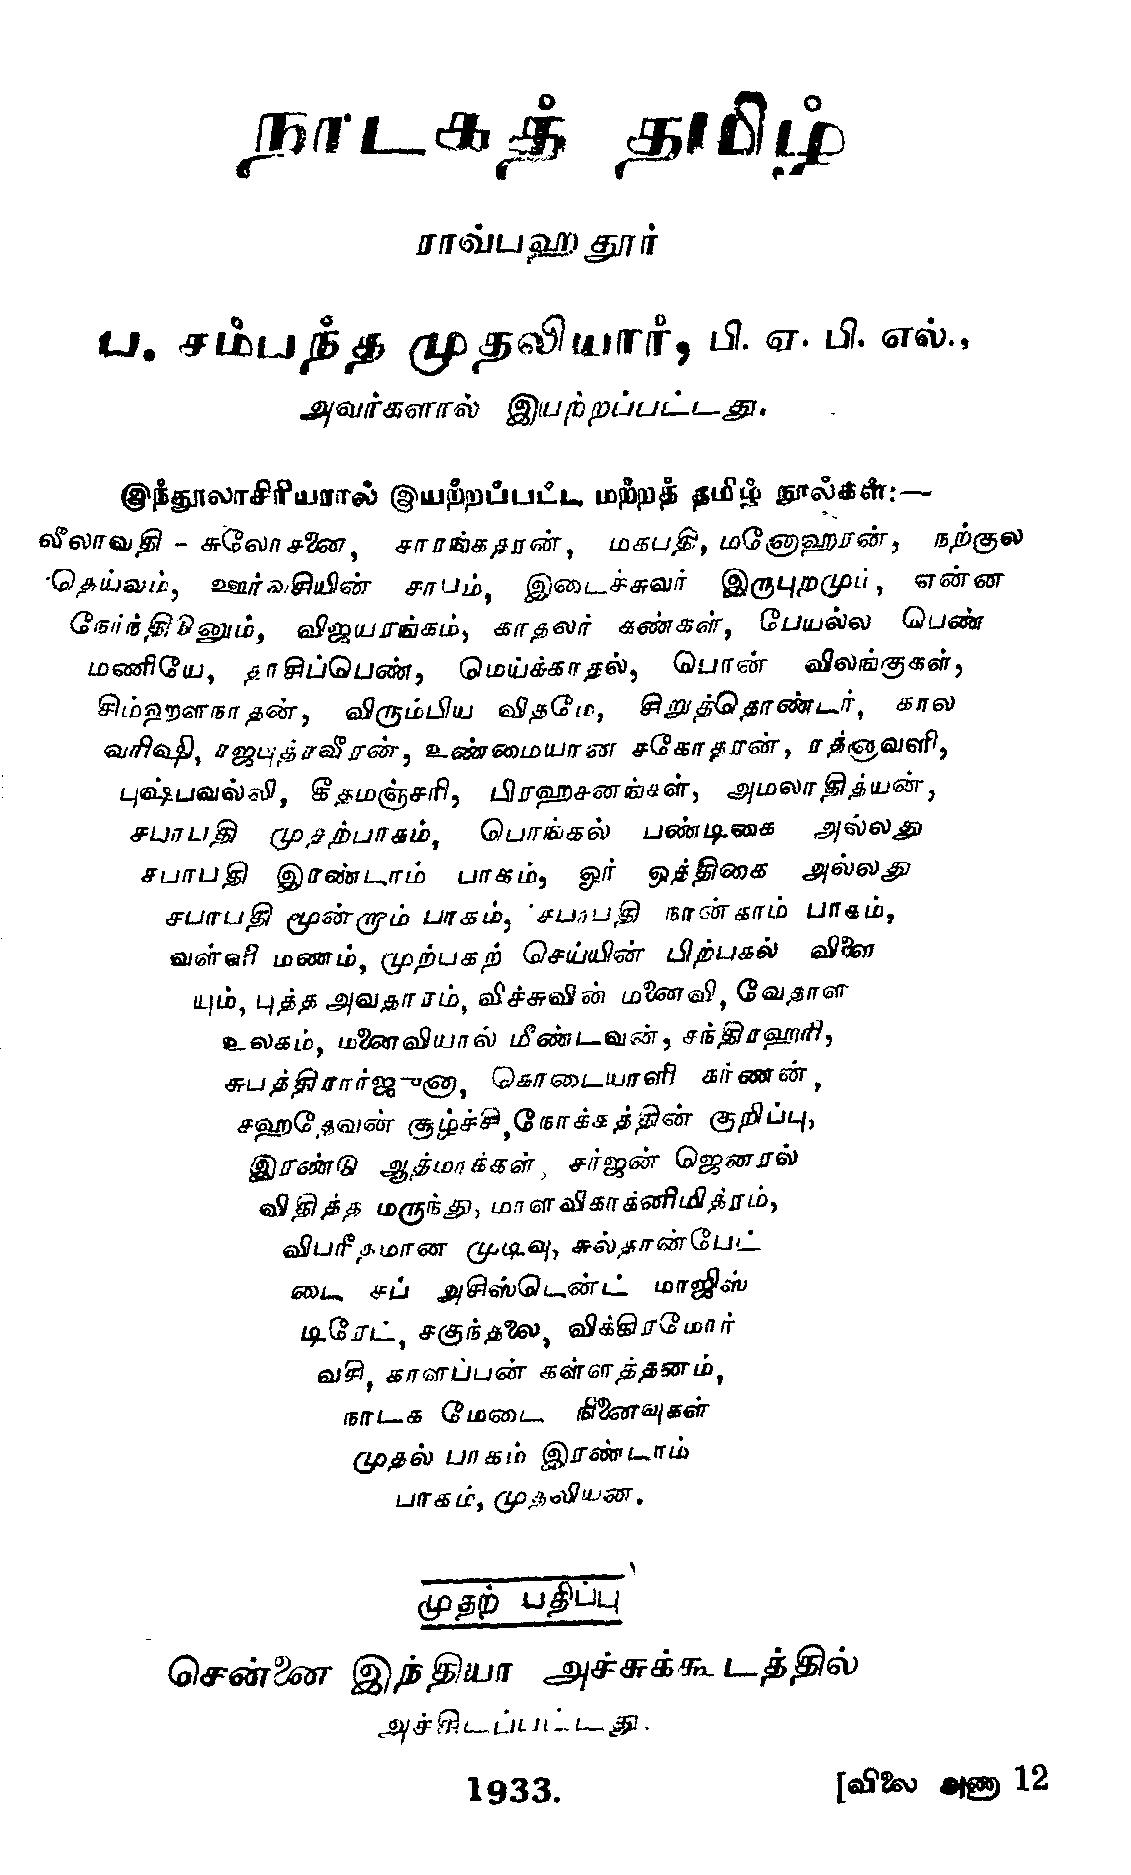 நாடகத் தமிழ்
ராவ்பஹதூர்
ப. சம்பந்த முதலியார், பி. ஏ. பி. எல்.,
அவர்களால் இயற்றப்பட்டது.
இந்நூலாசிரியரால் இயற்றப்பட்ட மற்றத் தமிழ் நூல்கள்:—
லீலாவதி - சுலோசனை, சாரங்கதரன், மகபதி, மனோஹரன், நற்குல
தெய்வம், ஊர்வசியின் சாபம், இடைச்சுவர் இருபுறமும், என்ன
நேர்ந்திடினும், விஜயரங்கம், காதலர் கண்கள், பேயல்ல பெண்
மணியே, தாசிப்பெண், மெய்க்காதல், பொன் விலங்குகள்,
சிம்ஹளநாதன், விரும்பிய விதமே, சிறுத்தொண்டர், கால
வரிஷி, ரஜபுத்ரவீரன், உண்மையான சகோதரன், ரத்னாவளி,
புஷ்பவல்லி, கீதமஞ்சரி, பிரஹசனங்கள், அமலாதித்யன்,
சபாபதி முதற்பாகம், பொங்கல் பண்டிகை அல்லது
சபாபதி இரண்டாம் பாகம், ஓர் ஒத்திகை அல்லது
சபாபதி மூன்றாம் பாகம், சபாபதி நான்காம் பாகம்,
வள்ளி மணம், முற்பகற் செய்யின் பிற்பகல் விளை
யும், புத்த அவதாரம், விச்சுவின் மனைவி, வேதாள
உலகம், மனைவியால் மீண்டவன், சந்திரஹரி,
சுபத்திரார்ஜுனா, கொடையாளி கர்ணன்,
சஹதேவன் சூழ்ச்சி, நோக்கத்தின் குறிப்பு,
இரண்டு ஆத்மாக்கள், சர்ஜன் ஜெனரல்
விதித்த மருந்து, மாளவிகாக்னிமித்ரம்,
விபரீதமான முடிவு, சுல்தான்பேட்
டை சப் அசிஸ்டெண்ட் மாஜிஸ்
டிரேட், சகுந்தலை, விக்கிரமோர்
வசி, காளப்பன் கள்ளத்தனம்,
நாடக மேடை நினைவுகள்
முதல் பாகம் இரண்டாம்
பாகம், முதலியன.
முதற் பதிப்பு
சென்னை இந்தியா அச்சுக்கூடத்தில்
அச்சிடப்பட்டது.
1933. [விலை அணா 12